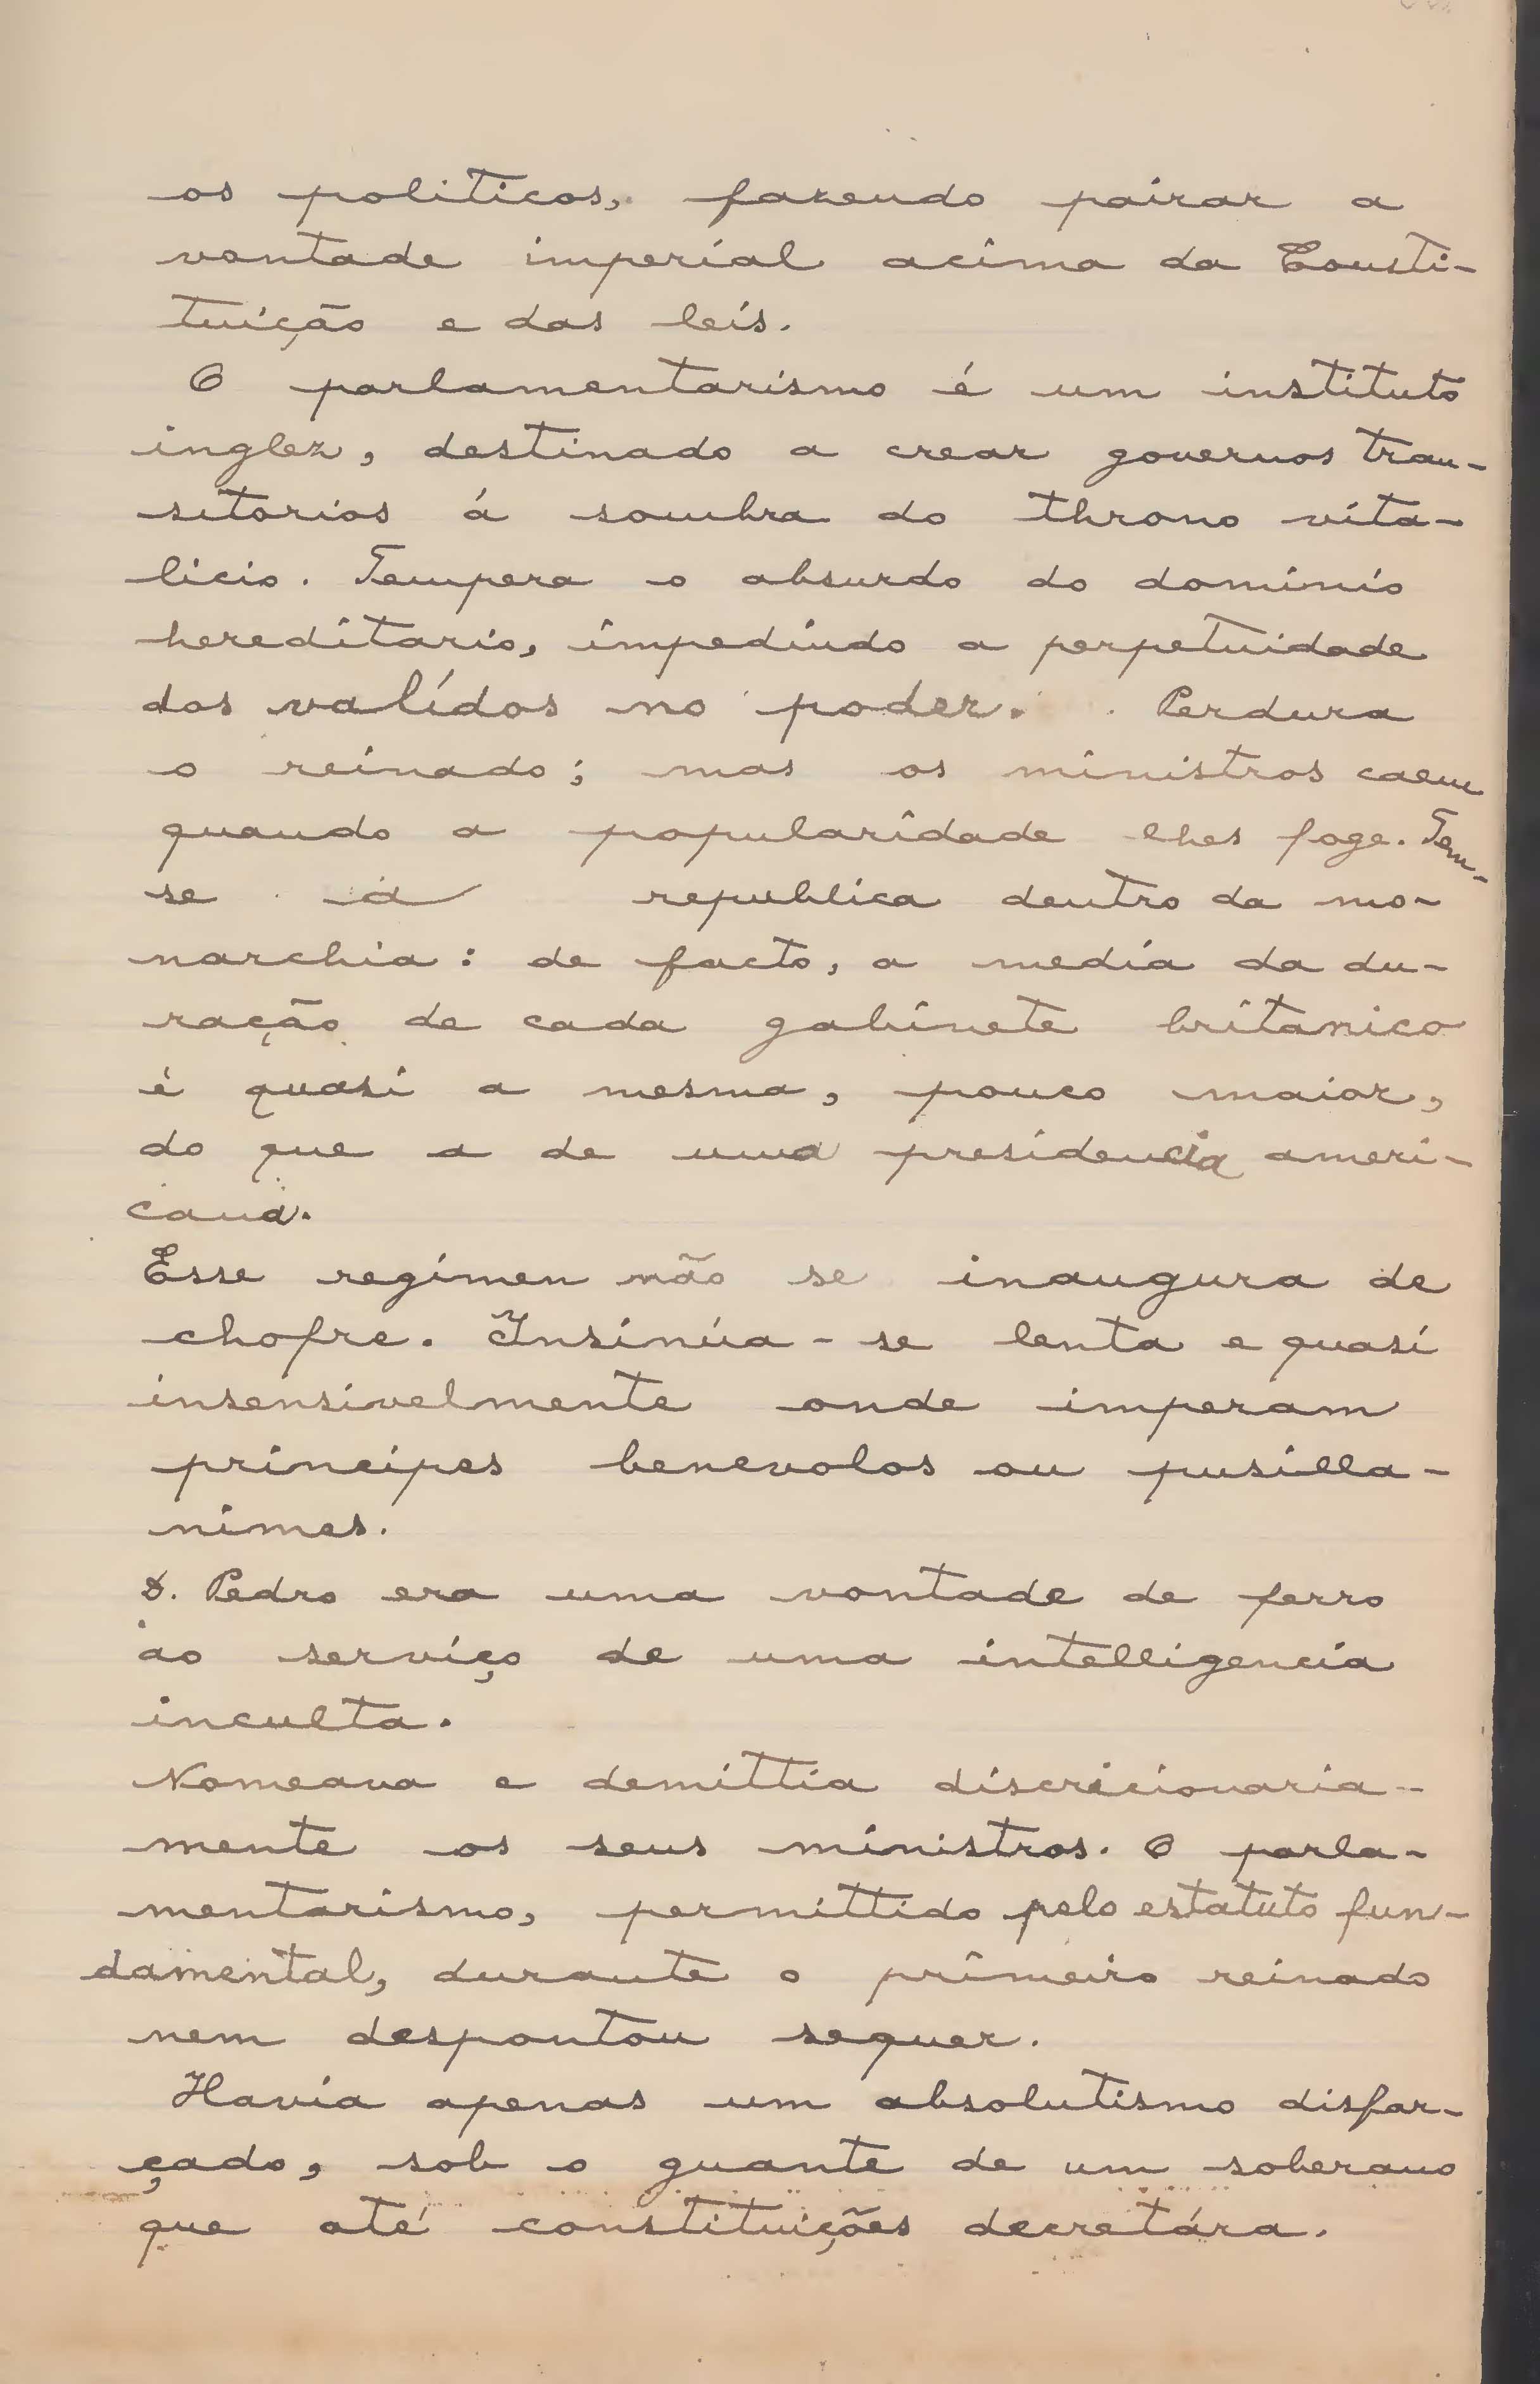 os politicos, fazendo pairar a
vontade imperial acima da Consti-
tuição e das leis.
O parlamentarismo é um instituto
inglez, destinado a crear governos tran-
sitorios á sombra do throno vita-
licio. Tempera o absurdo do dominio
hereditario, impedindo a perpetuidade
dos validos no poder. Perdura
o reinado; mas os ministros caem
quando a popularidade lhes foge. Tem-
se a republica dentro da mo-
narchia: de facto, a media da du-
ração de cada gabinete britanico
é quasi a mesma, pouco maior,
do que a de uma presidencia ameri-
cana.
Esse regimen não se inaugura de
chofre. Insinúa-se lenta e quasi
insensivelmente onde imperam
principes benevolos ou pusilla-
nimes.
D. Pedro era uma vontade de ferro
ao serviço de uma intelligencia
inculta.
Nomeava e demittia discricionaria-
mente os seus ministros. O parla-
mentarismo, permittido pelo estatuto fun-
damental, durante o primeiro reinado
nem despontou sequer.
Havia apenas um absolutismo disfar-
çado, sob o guante de um soberano
que até constituições decretára.